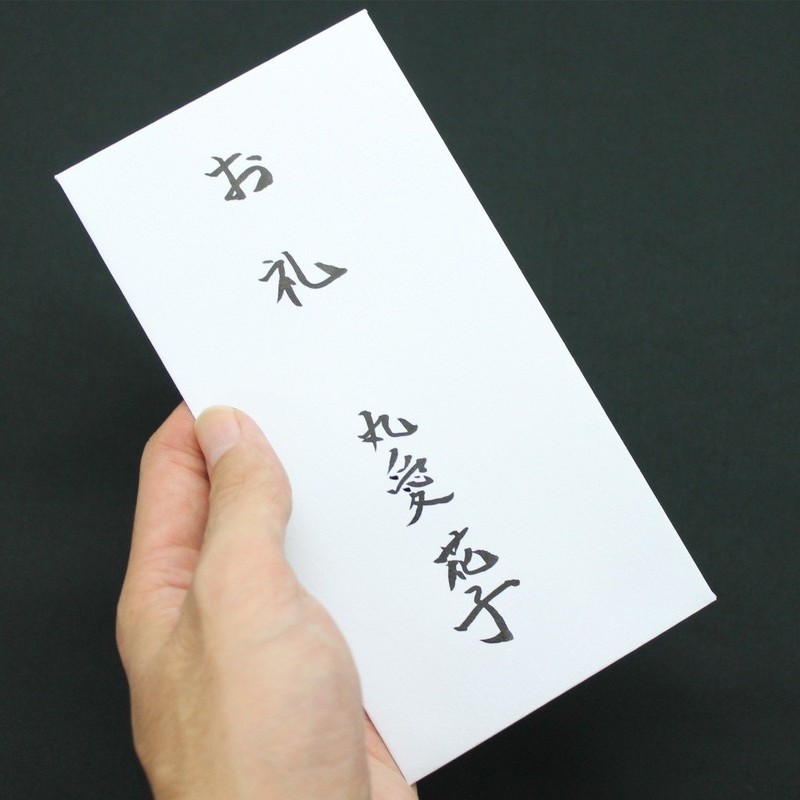 お礼
丸愛花子